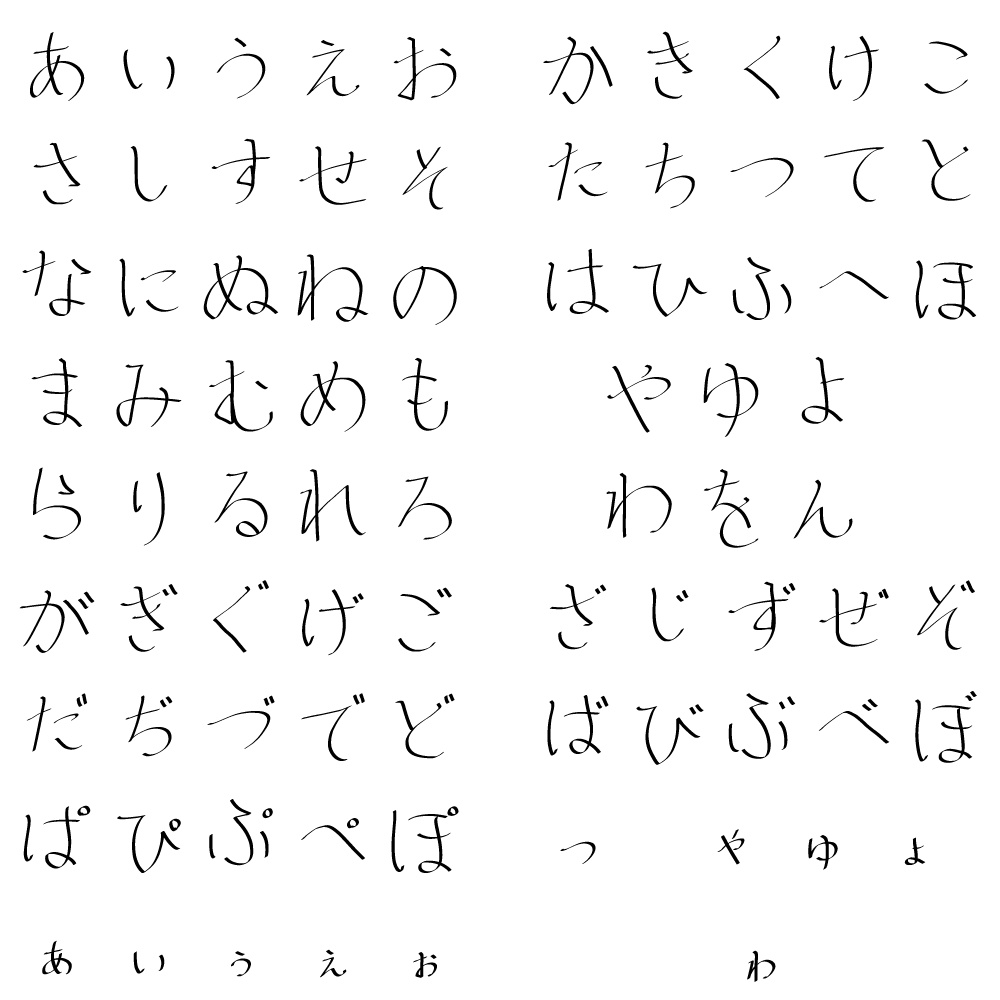 あいうえお かきくけこ
さしすせそ たちつてと
なにぬねの はひふへほ
まみむめも やゆよ
らりるれろ わをん
がぎぐげご ざじずぜぞ
だぢづでど ばびぶべぼ
ぱぴぷぺぽ っ ゃゅょ
ぁぃぅぇぉ ゎ